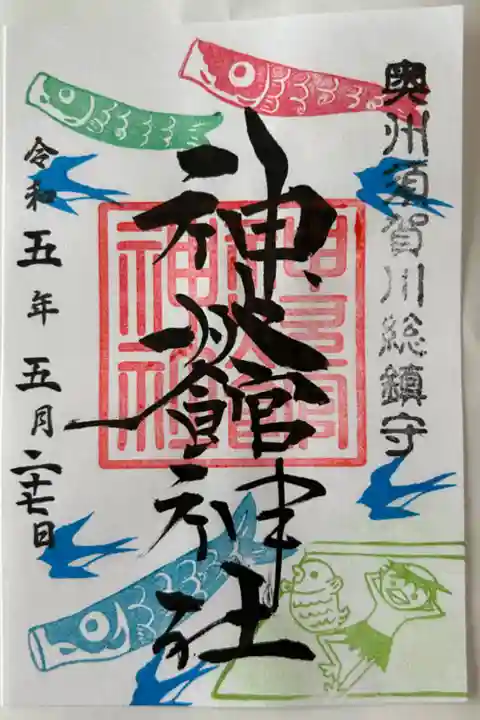 奥州須賀川総鎮守
神炊館神社
令和五年五月二十七日